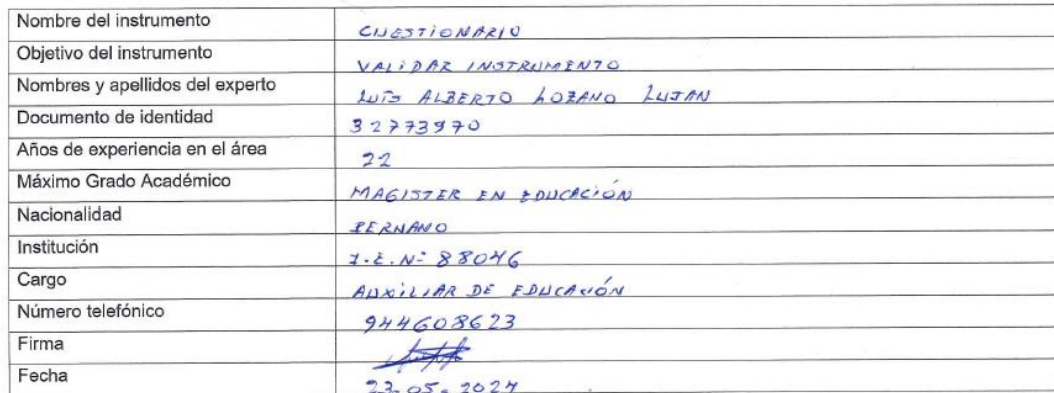 Nombre del instrumento CUESTIONARIO
Objetivo del instrumento VALIDAR INSTRUMENTO
Nombres y apellidos del experto LUIS ALBERTO LOZANO LUJAN
Documento de identidad 32773970
Años de experiencia en el área 22
Máximo Grado Académico MAGISTER EN EDUCACIÓN
Nacionalidad PERUANO
Institución I.E. Nº 88046
Cargo AUXILIAR DE EDUCACIÓN
Número telefónico 944608623
Firma
Fecha 23-05-2024